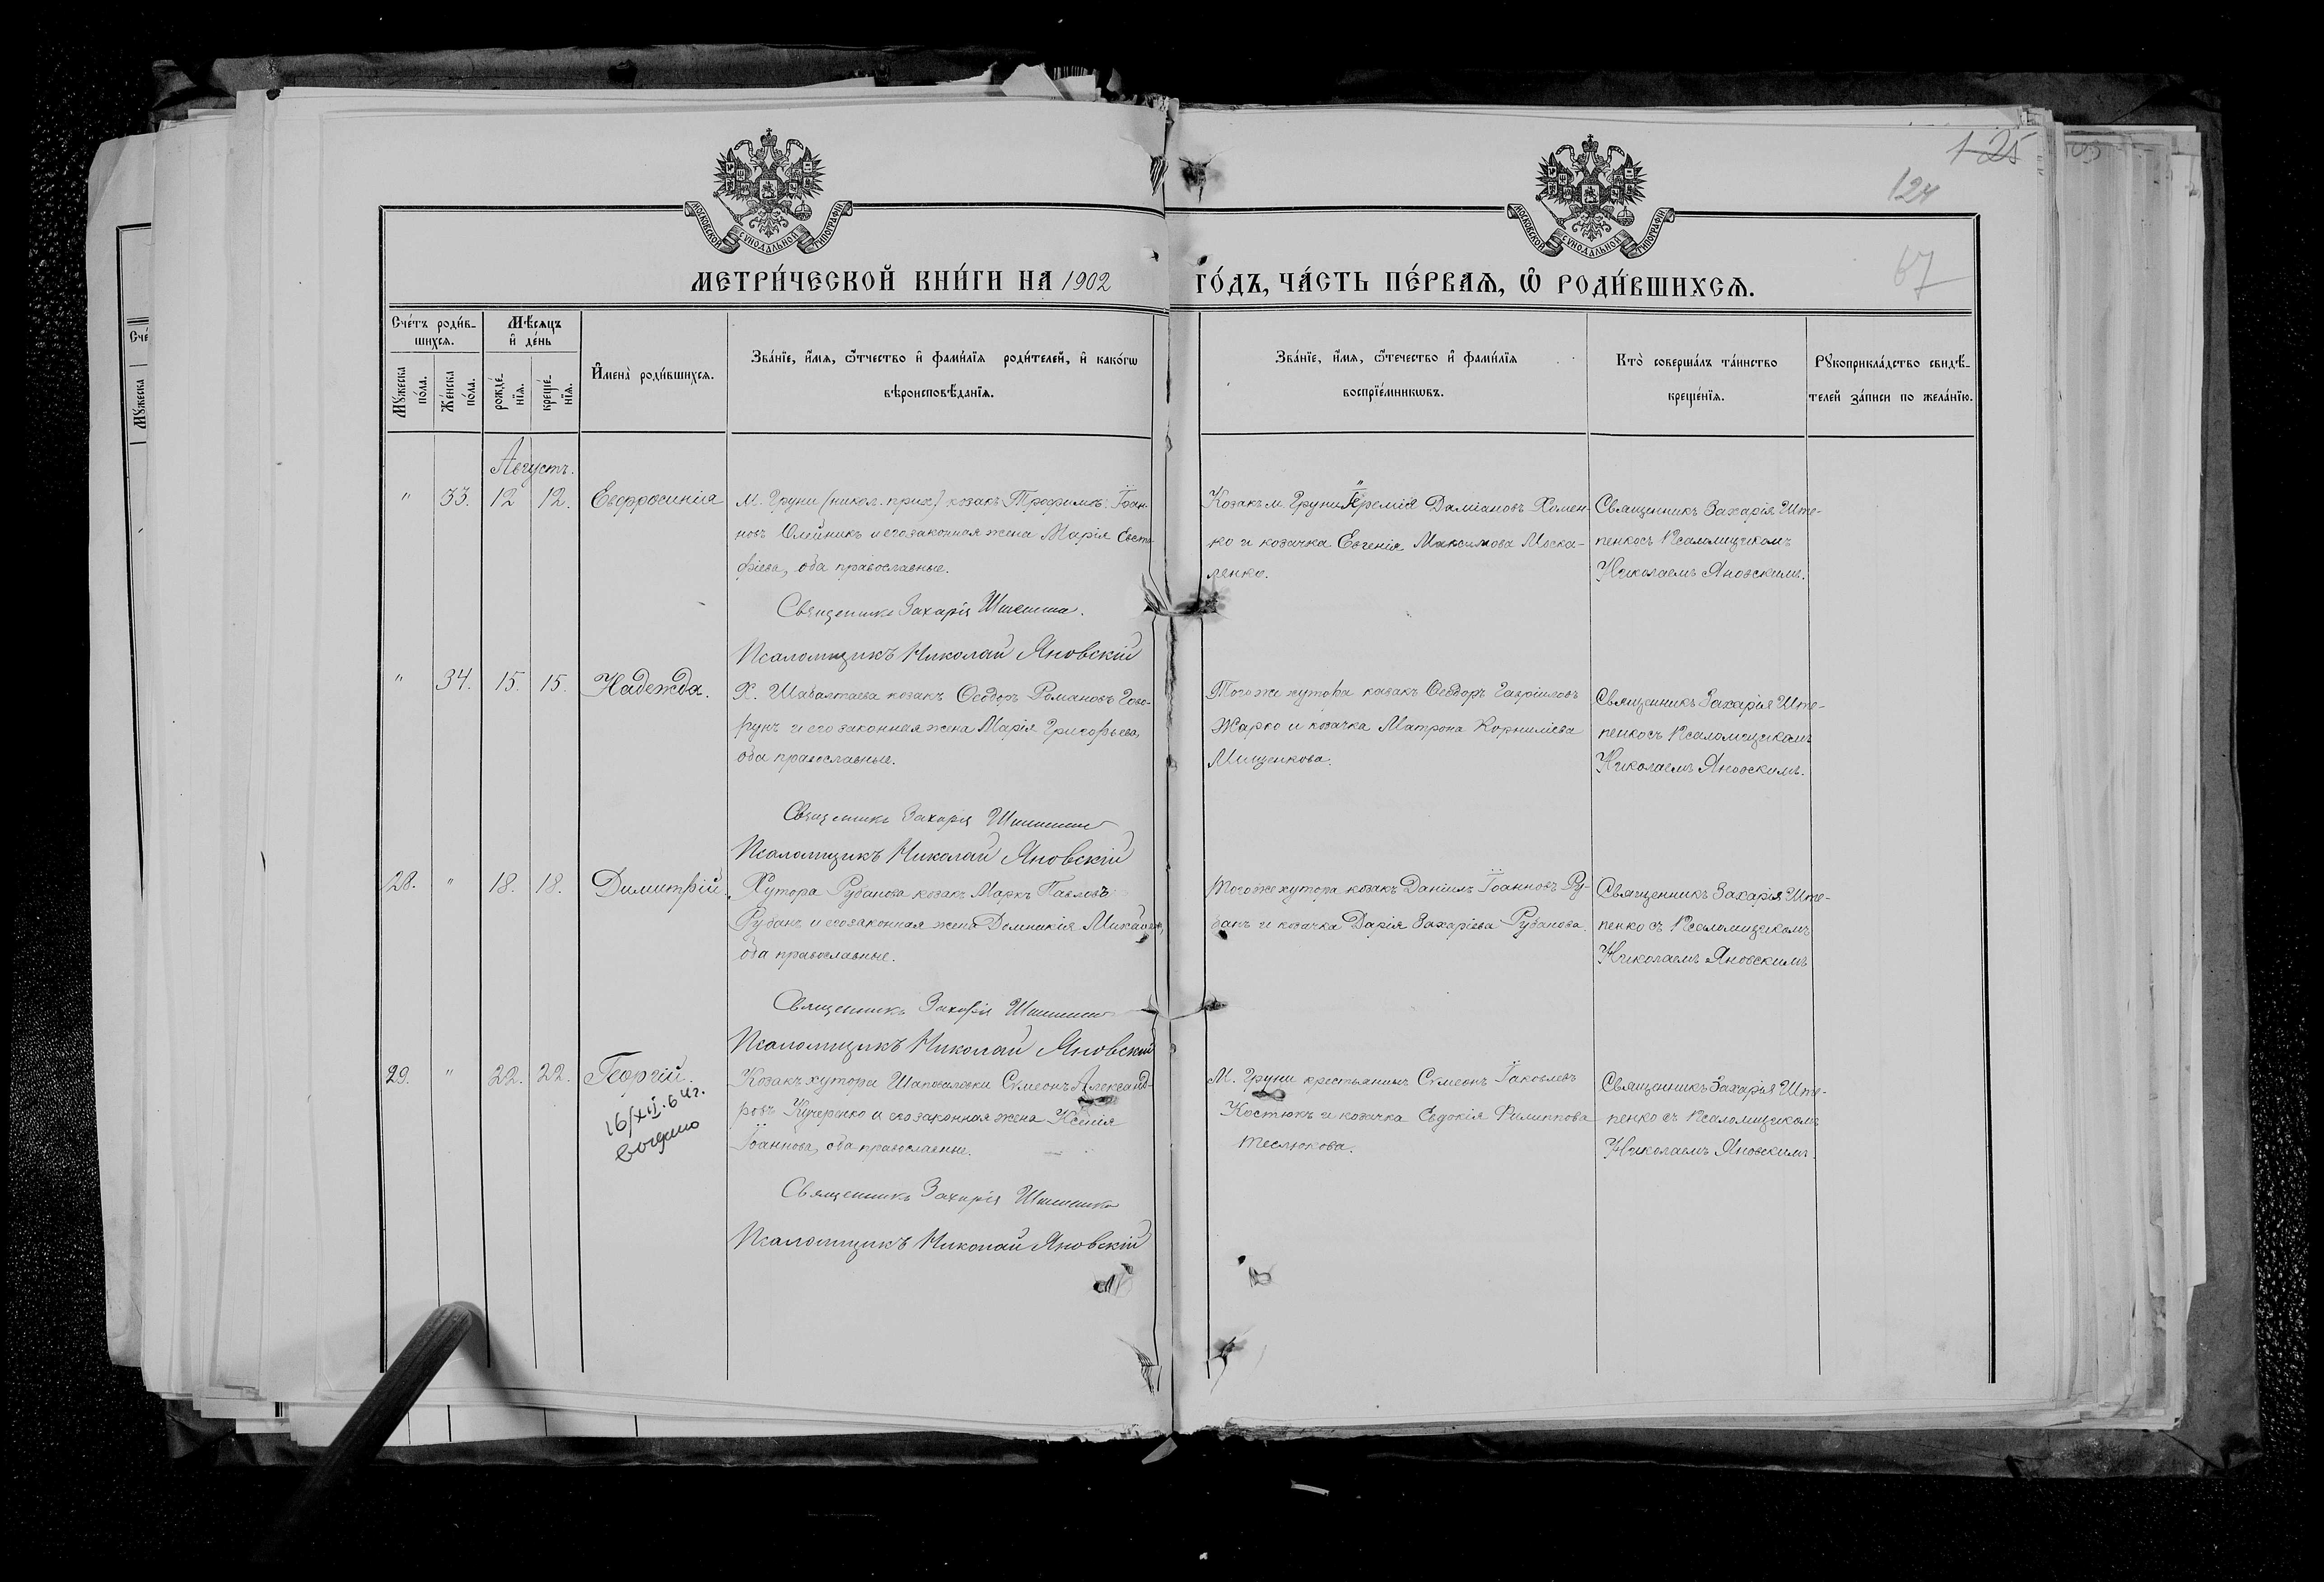 МОСКОВСКОЙ СѴНОДАЛЬНОЙ ТИПОГРАФІИ
МОСКОВСКОЙ СѴНОДАЛЬНОЙ ТИПОГРАФІИ
125
124
67
МЕТРИ́ЧЕСКОЙ КНИ́ГИ НА 1902 ГО́ДЪ, ЧА́СТЬ ПЕ́РВАѦ, Ѡ РОДИ́ВШИХСѦ.
Сче́тъ роди́в-
шихсѧ.
Мѣ́сѧцъ
и де́нь
Мꙋ́жеска
по́ла.
Же́нска
по́ла.
рожде́-
нїѧ.
креще́-
нїѧ.
Имена̀ роди́вшихсѧ.
Зва́нїе, и́мѧ, ѻ҆́тчество и фами́лїѧ роди́телей, и како́гѡ
вѣроисповѣ́данїѧ.
Зва́нїе, и́мѧ, ѻ҆́течество и фами́лїѧ
воспрїе́мникѡвъ.
Кто̀ соверша́лъ та́инство
креще́нїѧ.
Рꙋкоприкла́дство свидѣ́-
телей за́писи по жела́нїю.
Августъ.
" 33. 12 12. Евфросинія
М. Груни (никол. прих.) козакъ Трофимъ Іоан-
новъ Олейникъ и его законная жена Марія Евста-
фіева, оба православные.
Священникъ Захарія
Псаломщикъ Николай Яновскій
Козакъ м. Груни Іеремія Даміановъ Хомен-
ко и козачка Евгенія Максимова Моска-
ленко.
Священникъ Захарія Ште-
пенко съ Псаломщикомъ
Николаемъ Яновскимъ.
" 34. 15. 15. Надежда.
Х. Шабалтаева козакъ Ѳеодоръ Романовъ Гово-
рунъ и его законная жена Марія Григорьева,
оба православные.
Священникъ Захарія
Псаломщикъ Николай Яновскій
Того же хутора козакъ Ѳеодоръ Гавріиловъ
Жарко и козачка Матрона Корниліева
Мищенкова.
Священникъ Захарія Ште-
пенко съ Псаломщикомъ
Николаемъ Яновскимъ.
28. " 18. 18. Димитрій.
Хутора Рубанова козакъ Маркъ Павловъ
Рубанъ и его законная жена Домникія Михайлова,
оба православные.
Священникъ Захарія
Псаломщикъ Николай Яновскій
Того же хутора козакъ Даніилъ Іоанновъ Ру-
банъ и козачка Дарія Захаріева Рубанова.
Священникъ Захарія Ште-
пенко съ Псаломщикомъ
Николаемъ Яновскимъ
29. " 22. 22. Георгій.
16/XII.64г.
Козакъ хутора Шаповаловки Сѵмеонъ Александ-
ровъ Кучеренко и его законная жена Ксенія
Іоаннова, оба православные.
Священникъ Захарія
Псаломщикъ Николай Яновскій
М. Груни крестьянинъ Сѵмеонъ Іаковлевъ
Костюкъ и козачка Евдокія Филиппова
Теслюкова.
Священникъ Захарія Ште-
пенко съ Псаломщикомъ
Николаемъ Яновскимъ.